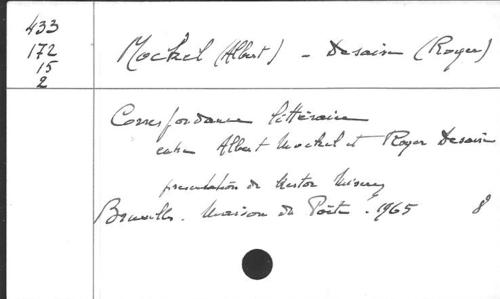 433
172
15
2
Mockel (Albert) - Desaise (Roger)
Correspondance littéraire
entre Albert Mockel et Roger Desaise
présentation de Nestor Miserez
Bruxelles. Maison du Poète. 1965 8